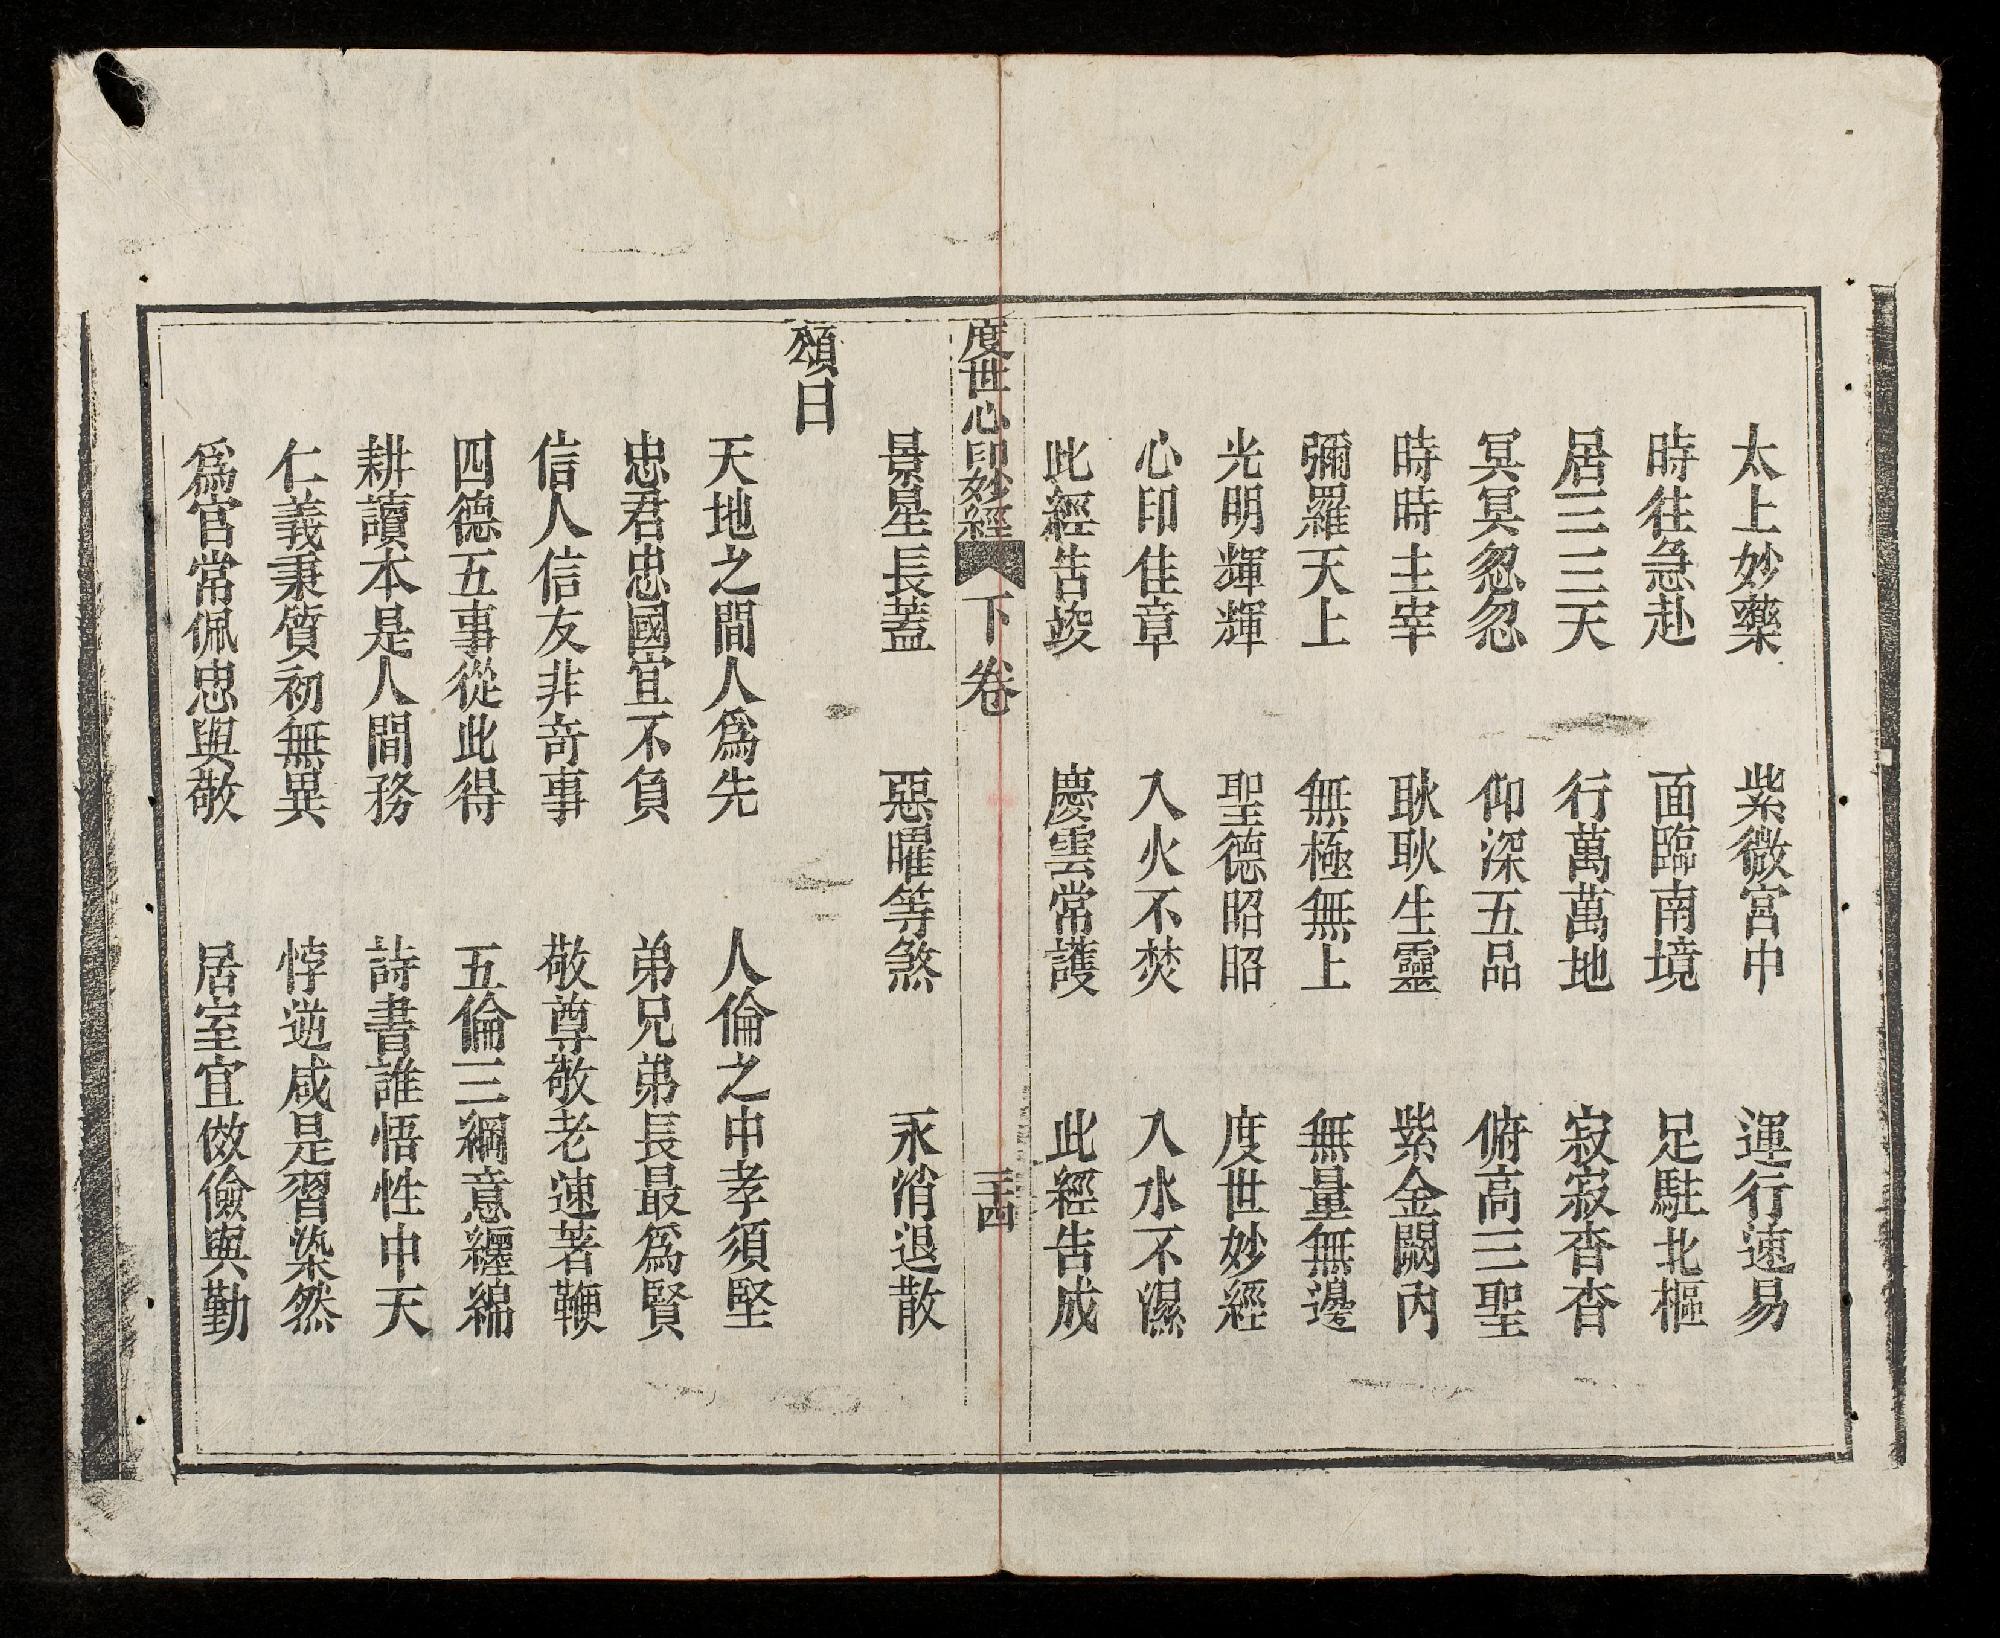 太上妙藥　紫微宮中　運行速易
時往急赴　面臨南境　足駐北樞
居三三天　行萬萬地　寂寂杳杳
冥冥忽忽　仰深五品　俯高三聖
時時主宰　耿耿生靈　紫金闕內
彌羅天上　無極無上　無量無邊
光明輝輝　聖德昭昭　度世妙經
心印佳章　入火不焚　入水不濕
此經告竣　慶雲常護　此經告成
度世心印妙經　下卷　三十四
景星長蓋　惡曜等煞　永消退散
頌曰
天地之間人爲先　人倫之中孝須堅
忠君忠國宜不負　弟兄弟長最爲賢
信人信友非奇事　敬尊敬老速著鞭
四德五事從此得　五倫三綱意纏綿
耕讀本是人間務　詩書誰悟性中天
仁義秉質初無異　悖逆咸是習染然
爲官常佩忠與敬　居室宜傚儉與勤